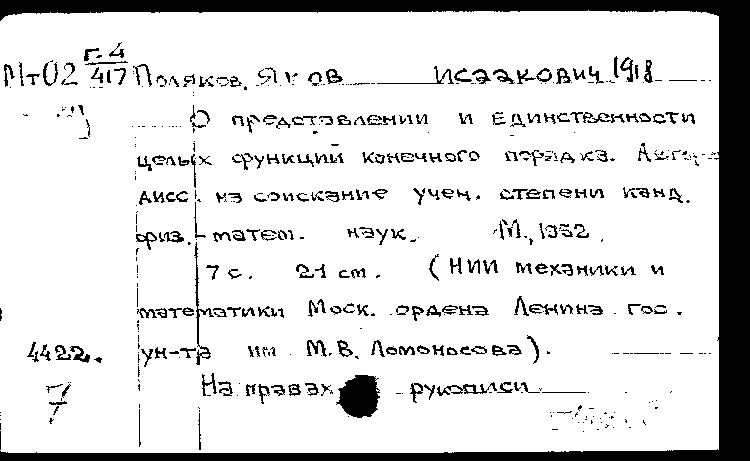 Мт02 г.4/417 Поляков, Яков Исаакович 1918
О представлении и единственности
целых функций конечного порядка. Автореф.
дисс. на соискание учен. степени канд.
физ.-матем. наук. М., 1952.
7 с. 21 см. (НИИ механики и
математики Моск. ордена Ленина гос.
4422. ун-та им М.В. Ломоносова).
7 На правах рукописи